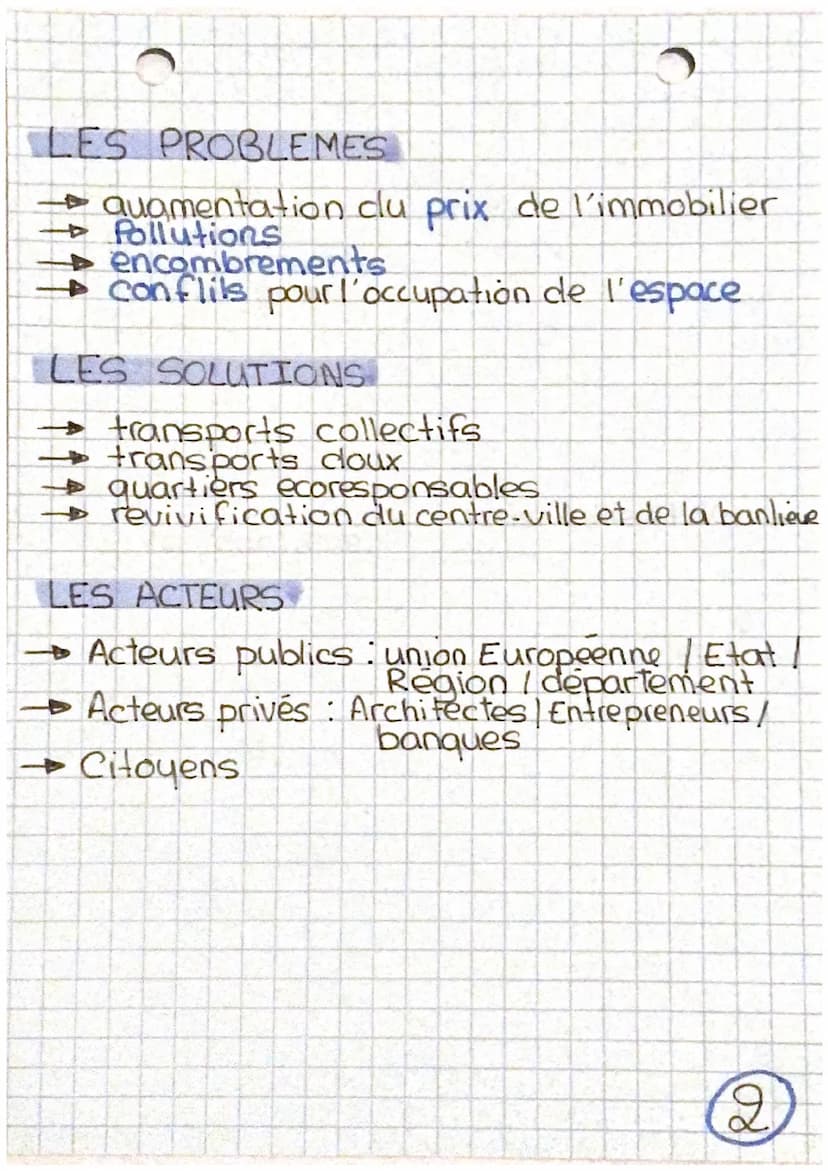 LES PROBLEMES
→ augmentation du prix de l'immobilier
→ Pollutions
→ encombrements
→ conflits pour l'occupation de l'espace
LES SOLUTIONS
→ transports collectifs
→ transports doux
→ quartiers ecoresponsables
→ revivification du centre-ville et de la banlieue
LES ACTEURS
→ Acteurs publics : union Européenne / Etat /
Région / département
→ Acteurs privés : Architectes / Entrepreneurs /
banques
→ Citoyens
2